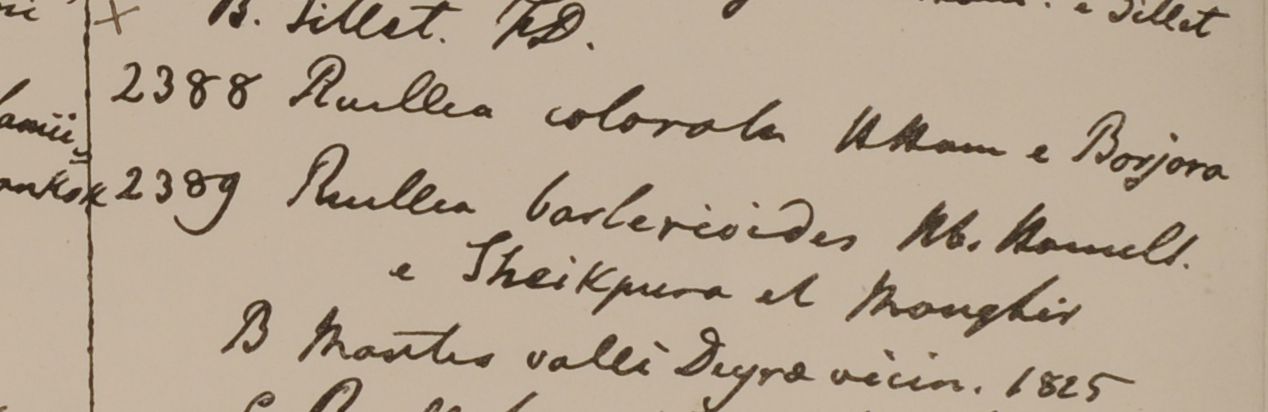 e Sillet
B. Sillet. FD.
2388 Ruellea colorata HHam e Borjora
2389 Ruellea barlerioides Hb. Hamilt.
e Sheikpura et Monghir
B Montes valli Deyræ vicin. 1825